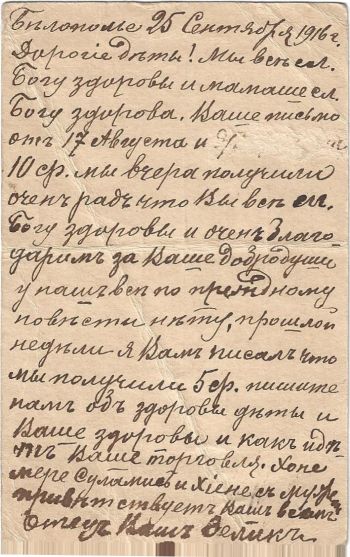 Бѣлополье 25 Сентября 1916 г.
Дорогіе Дѣты! Мы всѣ сл.
Богу здоровы и мамаше сл.
Богу здорова. Ваше письмо
отъ 17 Августа и
10 ф. мы вчера получили
очень радъ что Вы всѣ сл.
Богу здоровы и очень благо
даримъ за Ваше Добродуши
у нашъ всѣ по прежному
повѣсти нѣту, прошлой
недѣли я Вамъ писалъ что
мы получили 5 ф. пишите
намъ объ здоровы дѣты и
Ваше здоровы и какъ идѣ
тъ Ваше торговля. Хоне
мере Суламисъ и Хіене съ муже
привѣтствуетъ Вашъ
Отецъ Вашъ Великъ